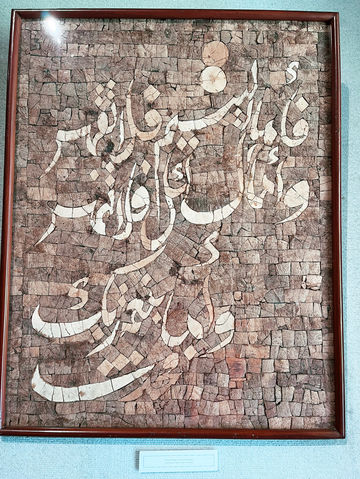 فأما اليتيم فلا تقهر
وأما السائل فلا تنهر
وأما بنعمة ربك
فحدث